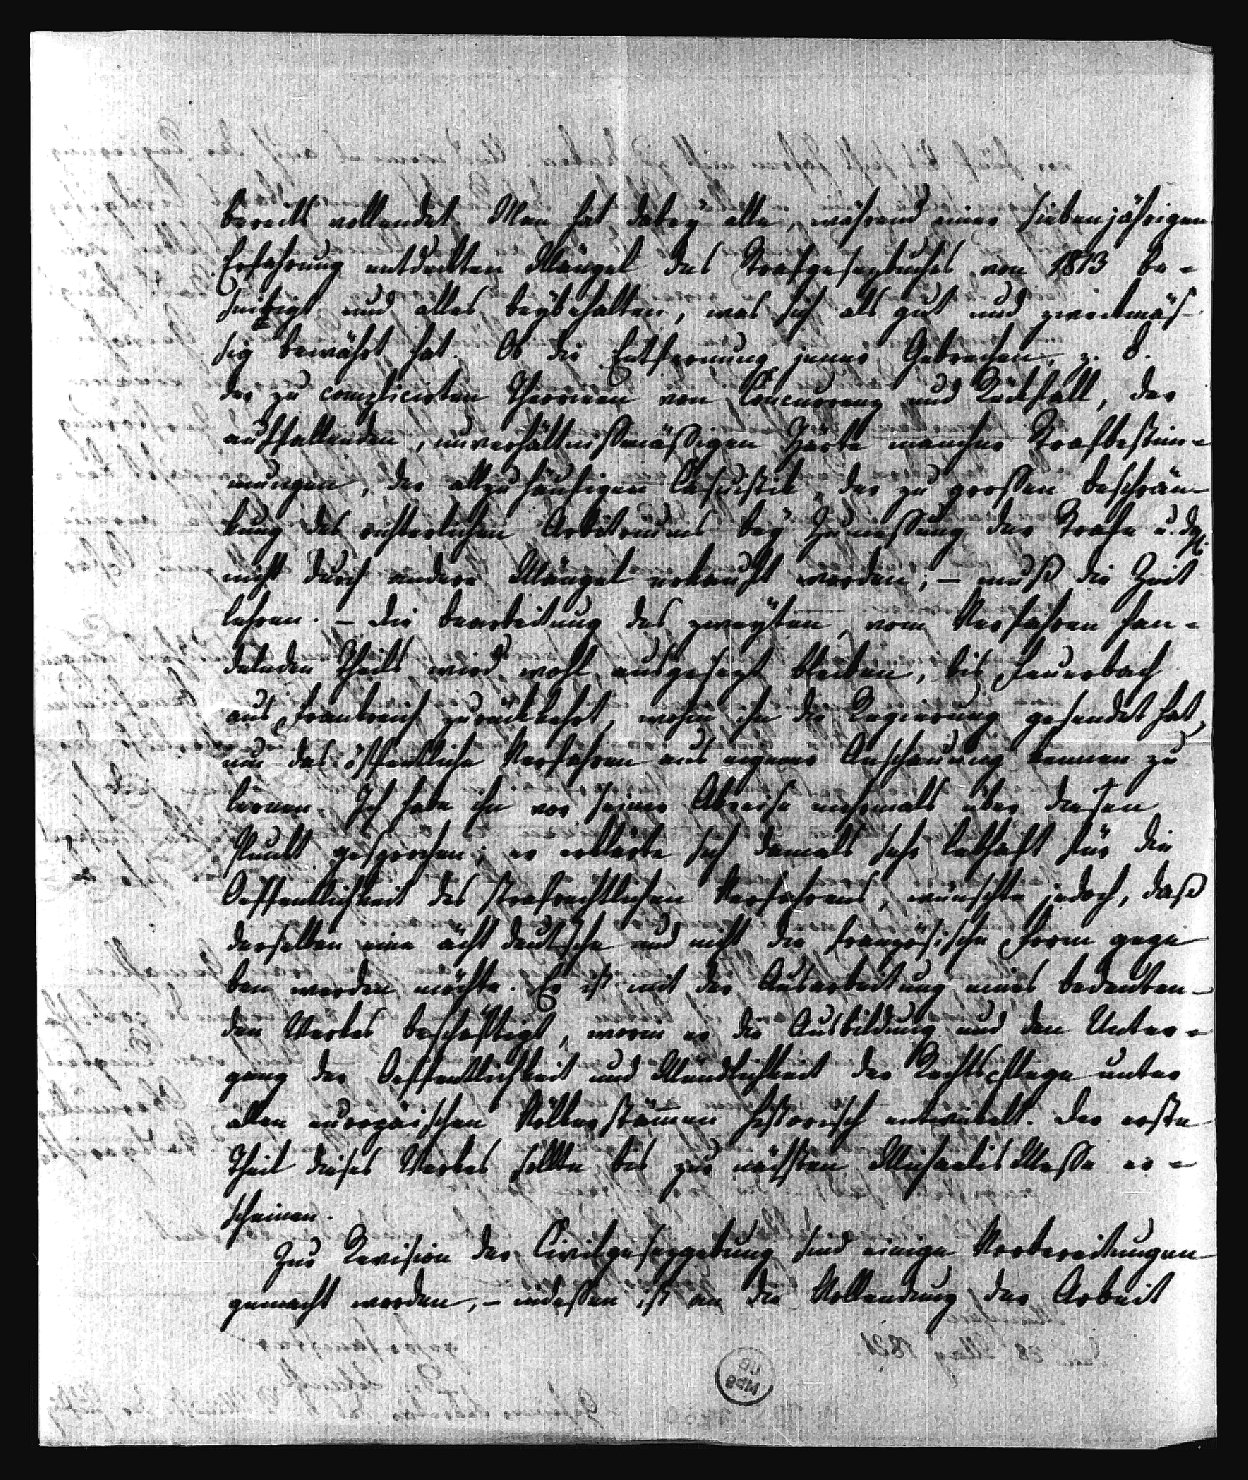 bereits vollendet. Man hat dabey alle, während einer siebenjährigen
Erfahrung entdeckten Mängel des Strafgesetzbuches von 1813 be-
seitigt und alles beybehalten, was sich als gut und zweckmäs-
sig bewährt hat. Ob die Entfernung jener Gebrechen z. B.
der zu complicirten Theorieen von Concurrenz und Rückfall, der
auffallenden, unverhältnißmäßigen Härte mancher Strafbestim-
mungen, der allzuhäufigen Casuistik, der zu großen Beschrän-
kung des richterlichen Arbitriums bey Zumessung der Strafe u. dgl.
nicht durch andere Mängel erkauft worden, – muß die Zeit
lehren. – Die Bearbeitung des zweyten vom Verfahren han-
delnden Theils wird wohl ausgesetzt bleiben, bis Feuerbach
aus Frankreich zurückkehrt, wohin ihn die Regierung gesendet hat,
um das öffentliche Verfahren aus eigener Anschauung kennen zu
lernen. Ich habe ihn vor seiner Abreise mehrmals über diesen
Punkt gesprochen; er erklärte sich damals sehr lebhaft für die
Oeffentlichkeit des strafrechtlichen Verfahrens, wünschte jedoch, daß
derselben eine ächt deutsche und nicht die französische Form gege
ben werden möchte. Er ist mit der Ausarbeitung eines bedeuten-
den Werkes beschäftigt, worin er die Ausbildung und den Unter-
gang der Oeffentlichkeit und Mündlichkeit der Rechtspflege unter
allen europäischen Völkerstämmen historisch entwickelt. Der erste
Theil dieses Werkes sollte bis zur nächsten Michaelis Messe er-
scheinen.
Zur Revision der Civilgesetzgebung sind einige Vorbereitungen
gemacht worden, – indessen ist an die Vollendung der Arbeit